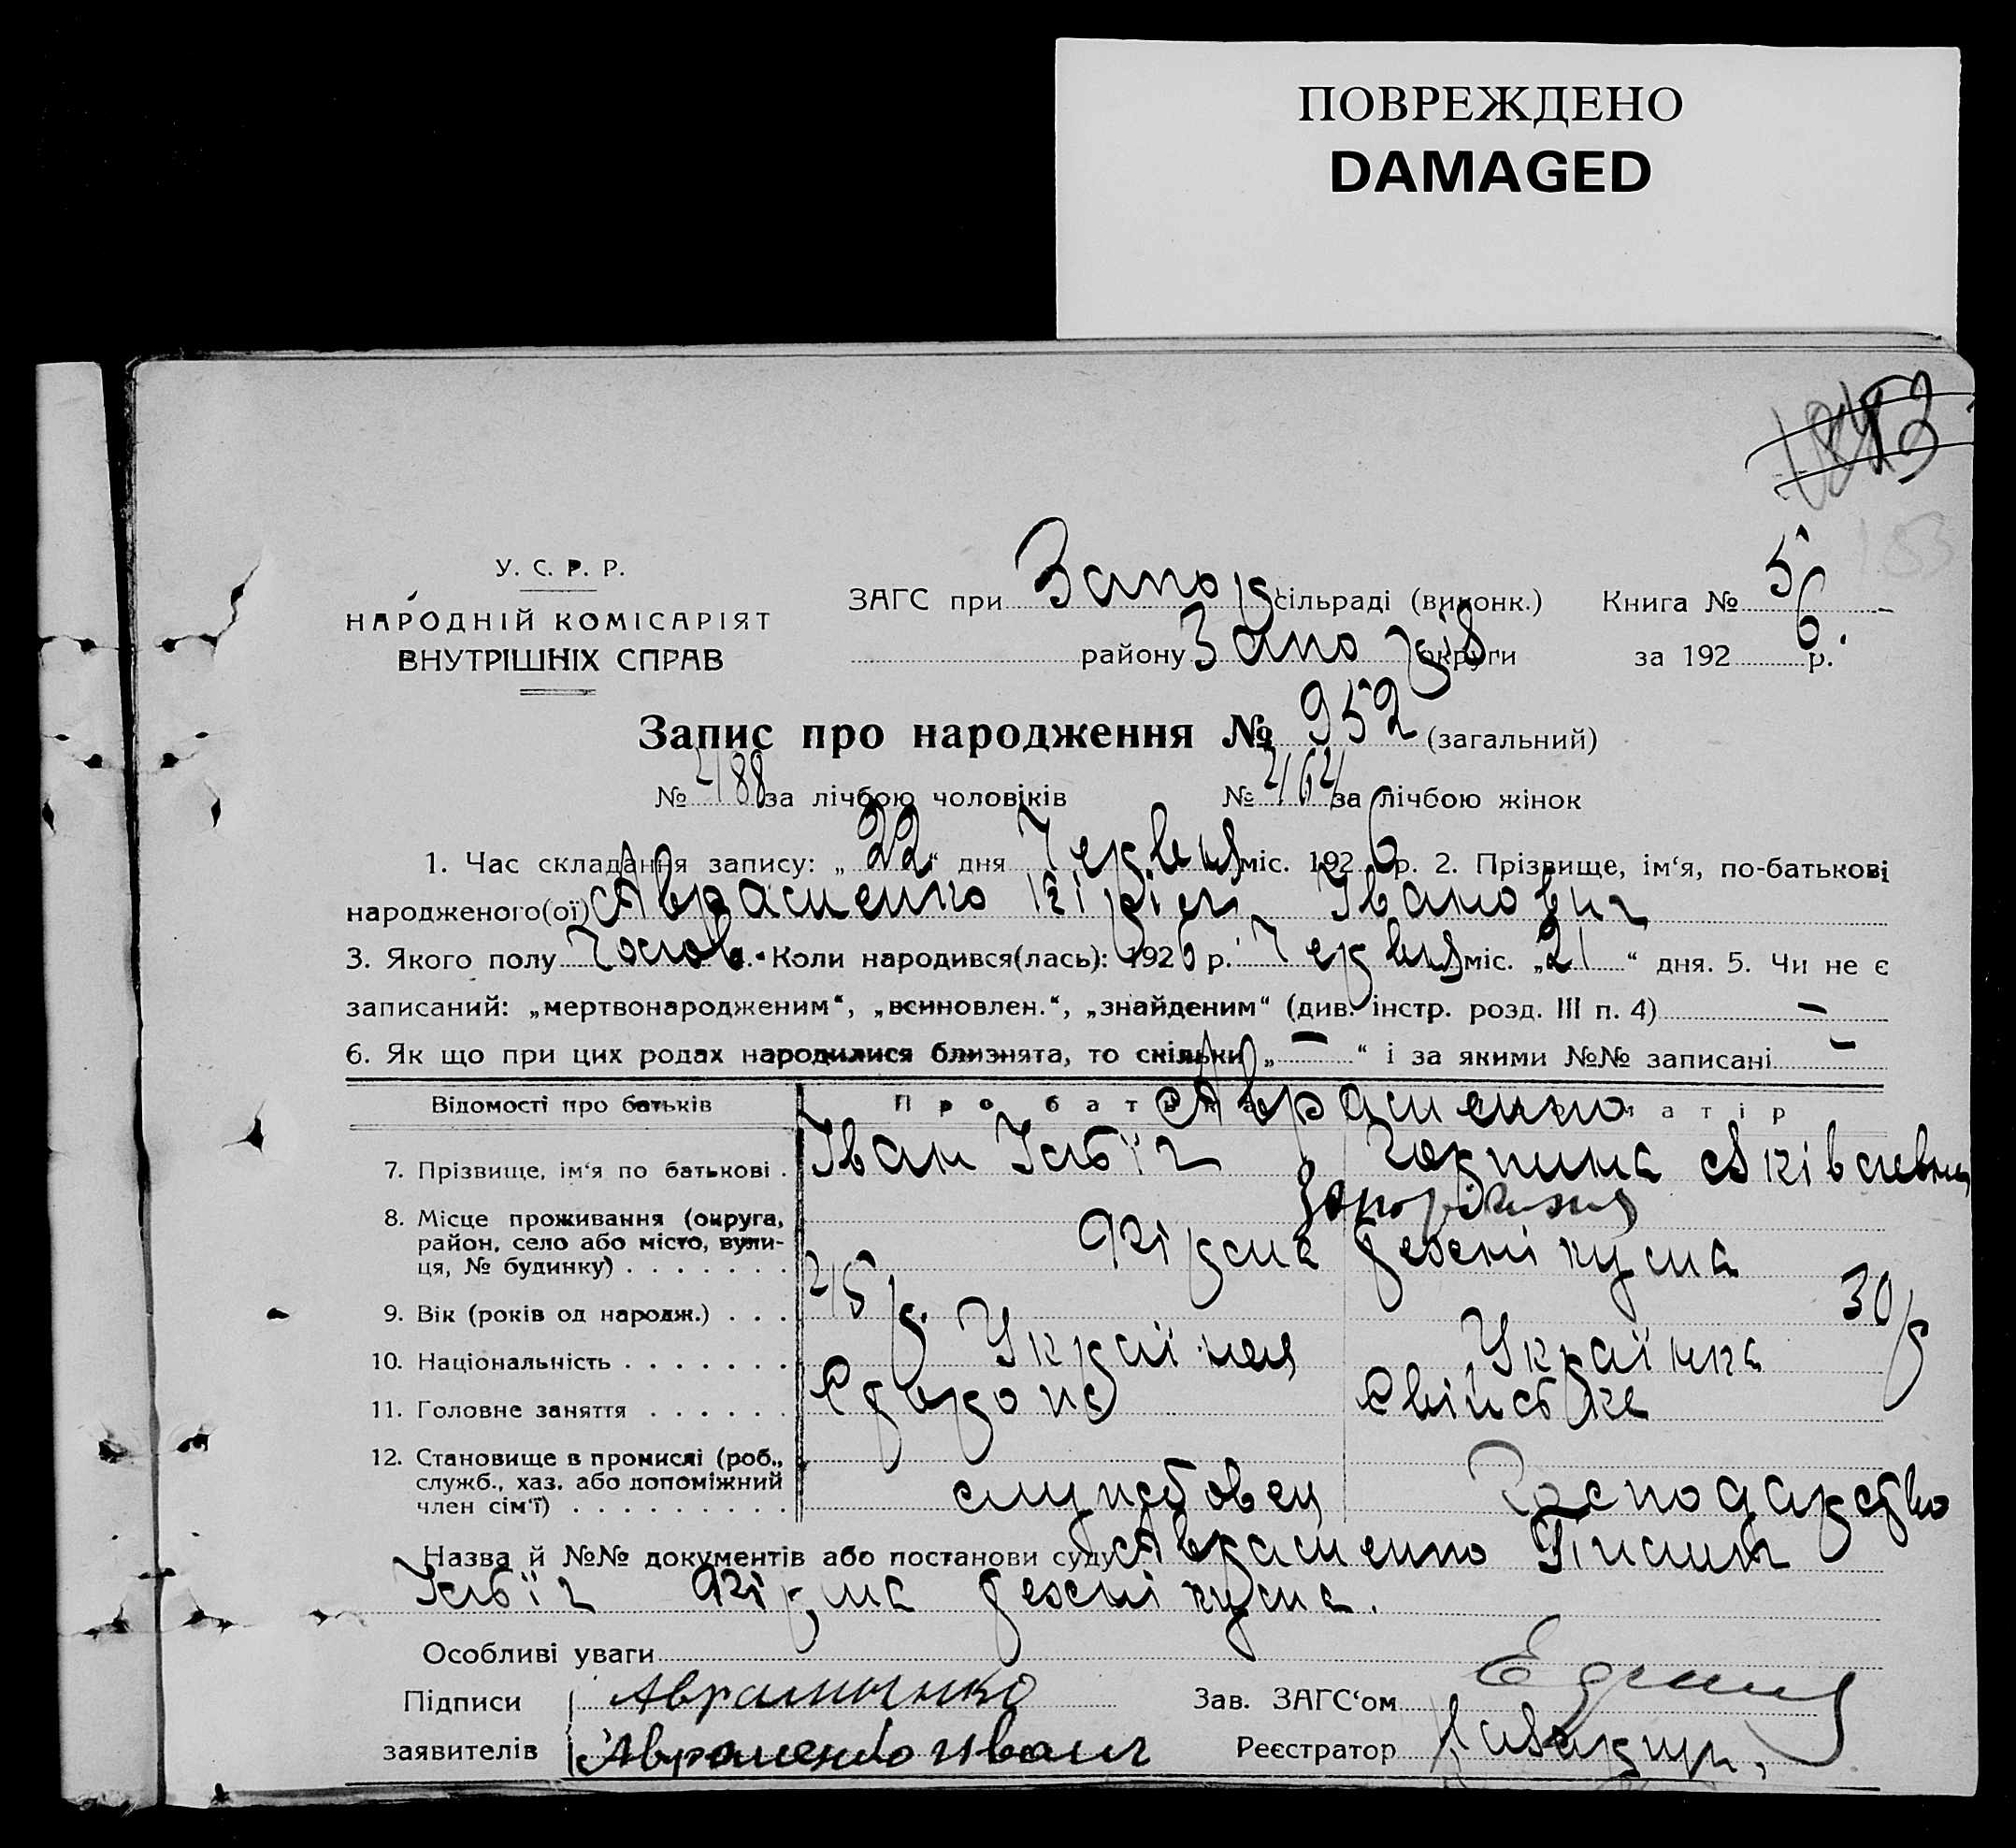 ПОВРЕЖДЕНО
DAMAGED
У. С. Р. Р.
НАРОДНІЙ КОМІСАРІЯТ
ВНУТРІШНІХ СПРАВ
ЗАГС при Запор сільраді (виконк.) Книга № 5
району Запоріз округи за 1926 р.
Запис про народження № 952 (загальний)
№ 488 за лічбою чоловіків № 464 за лічбою жінок
1. Час складання запису: „22“ дня Червня міс. 1926 р. 2. Прізвище, ім‘я, по-батькові
народженого(ої) Авраменко Іванович
3. Якого полу Чолов. 4. Коли народився(лась): 1926 р. Червня міс. „21“ дня. 5. Чи не є
записаний: „мертвонародженим“, „всиновлен.“, „знайденим“ (див. інстр. розд. III п. 4) —
6. Як що при цих родах народилися близнята, то скільки „—“ і за якими №№ записані —
Відомості про батьків Про батька Авраменко матір
7. Прізвище, ім‘я по батькові . Іван Яківлевна
8. Місце проживання (округа, район, село або місто, вулиця, № будинку) . . . . . . . Запоріжжя
9. Вік (років од народж.) . . . 45 р. 30 р
10. Національність . . . . . . . Українец Українка
11. Головне заняття . . . . . . Свійське
12. Становище в промислі (роб., служб., хаз. або допоміжний член сім‘ї) . . . . . . . . . службовец Господарство
Назва й №№ документів або постанови суду Авраменко
Особливі уваги
Підписи Авраменко Зав. ЗАГС‘ом
заявителів Авраменко Иван Реєстратор